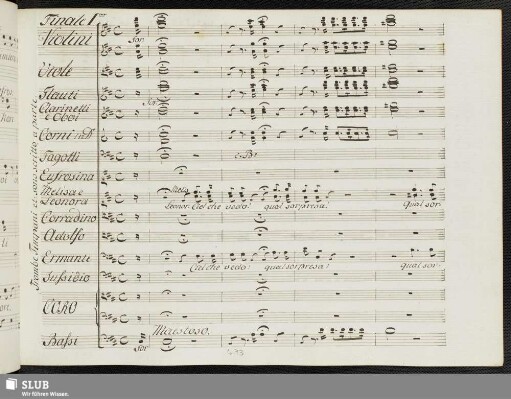 Finale I.mo
Violini
Viole
Flauti
Clarinetti
e Oboi
Corni in D
Fagotti
Eufrosina
Melisa e
Leonora
Corradino
Adolfo
Ermanti
Sussidio
CORO
Bassi
Trombe Timpani
a parte
Leonor: Ciel che vedo! qual sorpresa! Qual sor-
Ciel che vedo! qual sorpresa! qual sor-
Maestoso.
SLUB
Wir führen Wissen.